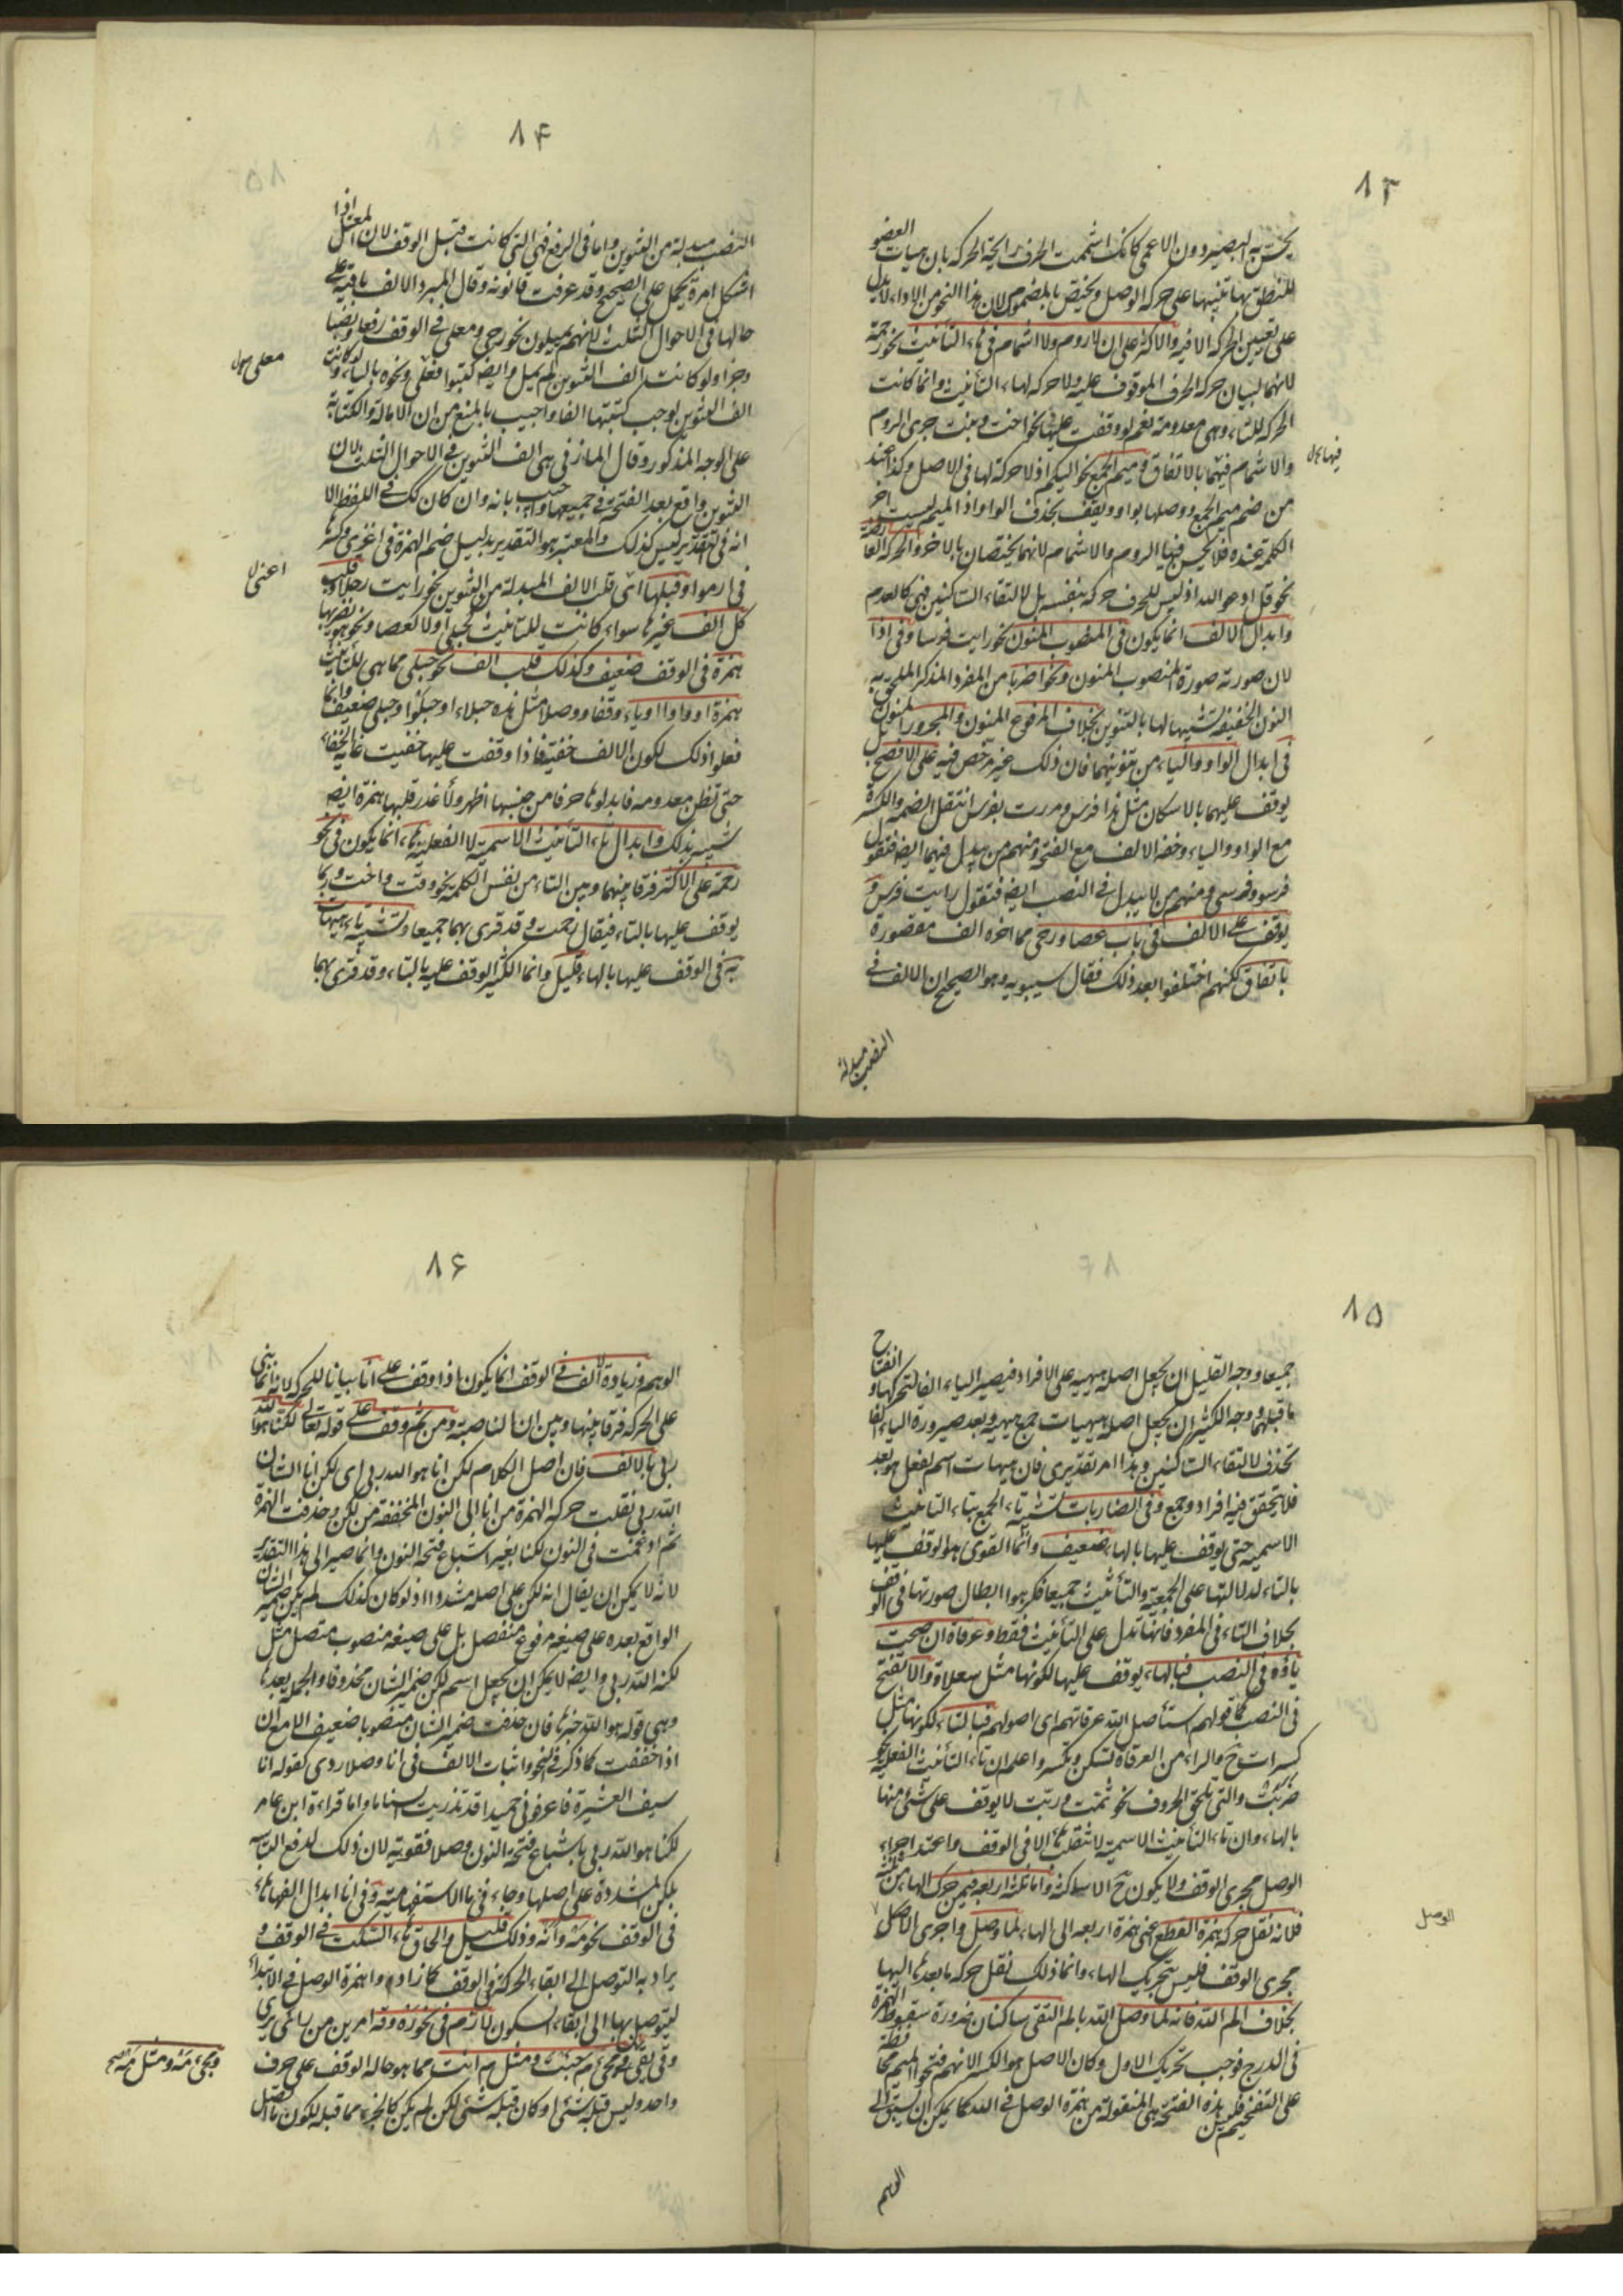 ٨٣
يحس به البصير دون الاعمى كانك اشممت الحرف رائحة الحركة بان هيات العضو
للنطق بها تنبيها على حركة الوصل ويختص بالمضموم لان هذا النحو من الاداء لا يدل
على تعيين الحركة الا فيه والاكثر على ان لا روم ولا اشمام في هاء التأنيث نحو رحمة
لانهما لبيان حركة الحرف الموقوف عليه ولا حركة لهاء التأنيث وانما كانت
الحركة للتاء وهي معدومة نعم لو وقفت عليها في نحو اخت وبنت جرى الروم
والاشمام فيهما بالاتفاق وميم الجمع نحو اليكم اذ لا حركة لها في الاصل وكذا عند
من ضم ميم الجمع ووصلها بواو ويقف بحذف الواو اذ الميم ليست اخر
الكلمة عنده فلا يحسن فيها الروم والاشمام لانهما يختصان بالاخر والحركة العارضة
نحو قل ادعوا الله اذ ليس للحرف حركة بنفسه بل لالتقاء الساكنين فهي كالعدم
وابدال الالف انما يكون في المنصوب المنون نحو رايت فرسا وفي اذا
لان صورته صورة المنصوب المنون ونحو اضربا من المفرد المذكر الملحق به
النون الخفيفة تشبيها لها بالتنوين بخلاف المرفوع المنون والمجرور المنون
في ابدال الواو والياء من تنوينهما فان ذلك غير مرخص فيه على الافصح بل
يوقف عليهما بالاسكان مثل هذا فرس ومررت بفرس لثقل الضمة والكسرة
مع الواو والياء وخفة الالف مع الفتحة ومنهم من يبدل فيهما ايضا فتقول
فرسو وفرسي ومنهم من لا يبدل في النصب ايضا فتقول رايت فرس و
يوقف على الالف في باب عصا ورحى مما اخره الف مقصورة
باتفاق لكنهم اختلفوا بعد ذلك فقال سيبويه وهو الصحيح ان الالف في
النصب مبدلة
٨٤
النصب مبدلة من التنوين واما في الرفع فهي التي كانت قبل الوقف لان المعتل اذا
اشكل امره يحمل على الصحيح وقد عرفت قانونه وقال المبرد الالف باقية على
حالها في الاحوال الثلث لانهم يميلون نحو رحى ومعلى في الوقف رفعا ونصبا
وجرا ولو كانت الف التنوين لم يمل وايضا كتبوا فعلى ونحوه بالياء ولو كانت
الف التنوين لوجب كتبتها الفا واجيب بالمنع من ان الامالة والكتابة
على الوجه المذكور وقال المازني هي الف التنوين في الاحوال الثلث لان
التنوين واقع بعد الفتحة في جميعها واجيب بانه وان كان كك في اللفظ الا
انه في التقدير ليس كذلك والمعتبر هو التقدير بدليل ضم الهمزة في اغزى وكسرها
في ارموا وقلبها اي قلب الالف المبدلة من التنوين نحو رايت رجلا وقلب
كل الف غيرها سواء كانت للتأنيث كحبلى او لا كعصا ونحو هو يضربها
همزة في الوقف ضعيف وكذلك قلب الف نحو حبلى مما هي للتأنيث
همزة او واوا او ياء وقفا ووصلا مثل هذه حبلاء او حبلو او حبلى ضعيف وانما
فعلوا ذلك لكون الالف خفية فاذا وقفت عليها خفيت غاية الخفاء
حتى تظن معدومة فابدلوها حرفا من جنسها اظهر ولا غدر قلبها همزة ايضا
شبيه بذلك وابدال تاء التأنيث الاسمية لا الفعلية هاء انما يكون في نحو
رحمة على الاكثر فرقا بينهما وبين التاء من نفس الكلمة نحو وقت واخت وربما
يوقف عليها بالتاء فيقال رحمت وقد قرئ بهما جميعا وتشبيه تاء هيهات
به في الوقف عليها بالهاء قليل وانما الكثير الوقف عليه بالتاء وقد قرئ بهما
٨٥
جميعا ووجه القليل ان يجعل اصله هيهية على الافراد فيصير الياء الفا لتحركها وانفتاح
ما قبلها ووجه الكثير ان يجعل اصله هيهيات جمع هيهية وبعد صيرورة الياء الفا
تحذف لالتقاء الساكنين وهذا امر تقديري فان هيهات اسم لفعل هو بعد
فلا يتحقق فيه افراد وجمع وفي الضاربات تشبيه تاء الجمع بتاء التأنيث
الاسمية حتى يوقف عليها بالهاء ضعيف وانما القوى هو الوقف عليها
بالتاء لدلالتها على الجمعية والتأنيث جميعا فكرهوا ابطال صورتها في الوقف
بخلاف التاء في المفرد فانها تدل على التأنيث فقط وعرفاة ان فتحت
تاؤه في النصب فبالهاء يوقف عليها لكونها مثل سعلاة والا تفتح
في النصب كما قولهم استأصل الله عرفاتهم اى اصولهم فبالتاء لكونها مثل
كسرات ح والراء من العرقاة تسكن وتكسر واعلم ان تاء التأنيث الفعلية نحو
ضربت والتي تلحق الحروف نحو ثمت وربت لا يوقف على شئ منها
بالهاء وان تاء التأنيث الاسمية لا تنقلب هاء الا في الوقف واعتد اجراء
الوصل مجرى الوقف ولا يكون ح الا ساكنة واما ثلثة اربعة فيمن حرك الهاء من ثلثة
فلانه نقل حركة همزة القطع اعنى همزة اربعة الى الهاء لما وصل واجرى الوصل
مجرى الوقف فليس تحريك الهاء وانما ذلك نقل حركة ما بعدها اليها
بخلاف الم الله فانه لما وصل الله بالم التقى ساكنان ضرورة سقوط الهمزة
في الدرج فوجب تحريك الاول وكان الاصل هو الكسر الا انهم فتحوا الميم محافظة
على التفخيم فليس هذه الفتحة هي المنقولة من همزة الوصل في الله كما يمكن ان يسبق الى
الوهم
الوصل
٨٦
الوهم وزيادة الالف في الوقف انما يكون اذا وقف على انا بيانا للحركة لانه انما بنى
على الحركة فرقا بينها وبين ان الناصبة ومن ثم وقف على قوله تعالى لكنا هو الله
ربى بالالف فان اصل الكلام لكن انا هو الله ربى اى لكن انا الشان
الله ربى نقلت حركة الهمزة من انا الى النون المخففة من لكن وحذفت الهمزة
ثم ادغمت في النون لكنا بغير اشباع فتحة النون وانما صير الى هذا التقدير
لانه لا يمكن ان يقال انه لكن على اصله مشددا اذ لو كان كذلك لم يكن ضمير الشان
الواقع بعده على صيغة مرفوع منفصل بل على صيغة منصوب متصل مثل
لكنه الله ربى وايضا لا يمكن ان يجعل اسم لكن ضمير الشان محذوفا والجملة بعدها
وهي قوله هو الله خبرها فان حذف ضمير الشان منصوبا ضعيف الا مع ان
اذا خففت كما ذكر في النحو واثبات الالف في انا وصلا ردى كقوله انا
سيف العشيرة فاعرفونى حميدا قد تذريت السناما واما قراءة ابن عامر
لكنا هو الله ربى باشباع فتحة النون وصلا فقوية لان ذلك لدفع التباسه
بلكن المشددة على اصلها وجاء في ما الاستفهامية وفي انا ابدال الفها هاء
في الوقف نحو مه وانه وذلك قليل والحاق هاء السكت في الوقف و
يراد به التوصل الى ابقاء الحركة في الوقف كما زادوا همزة الوصل في الابتداء
ليتوصل بها الى ابقاء السكون لازم في نحو ره وقه امرين من راى يرى
وقى يقى ومجئ م جئت ومثل م انت مما هو حالة الوقف على حرف
واحد وليس قبله شئ او كان قبله شئ لكن لم يكن كالجزء مما قبله لكون ما اتصل
ومجئ مه ومثل مه